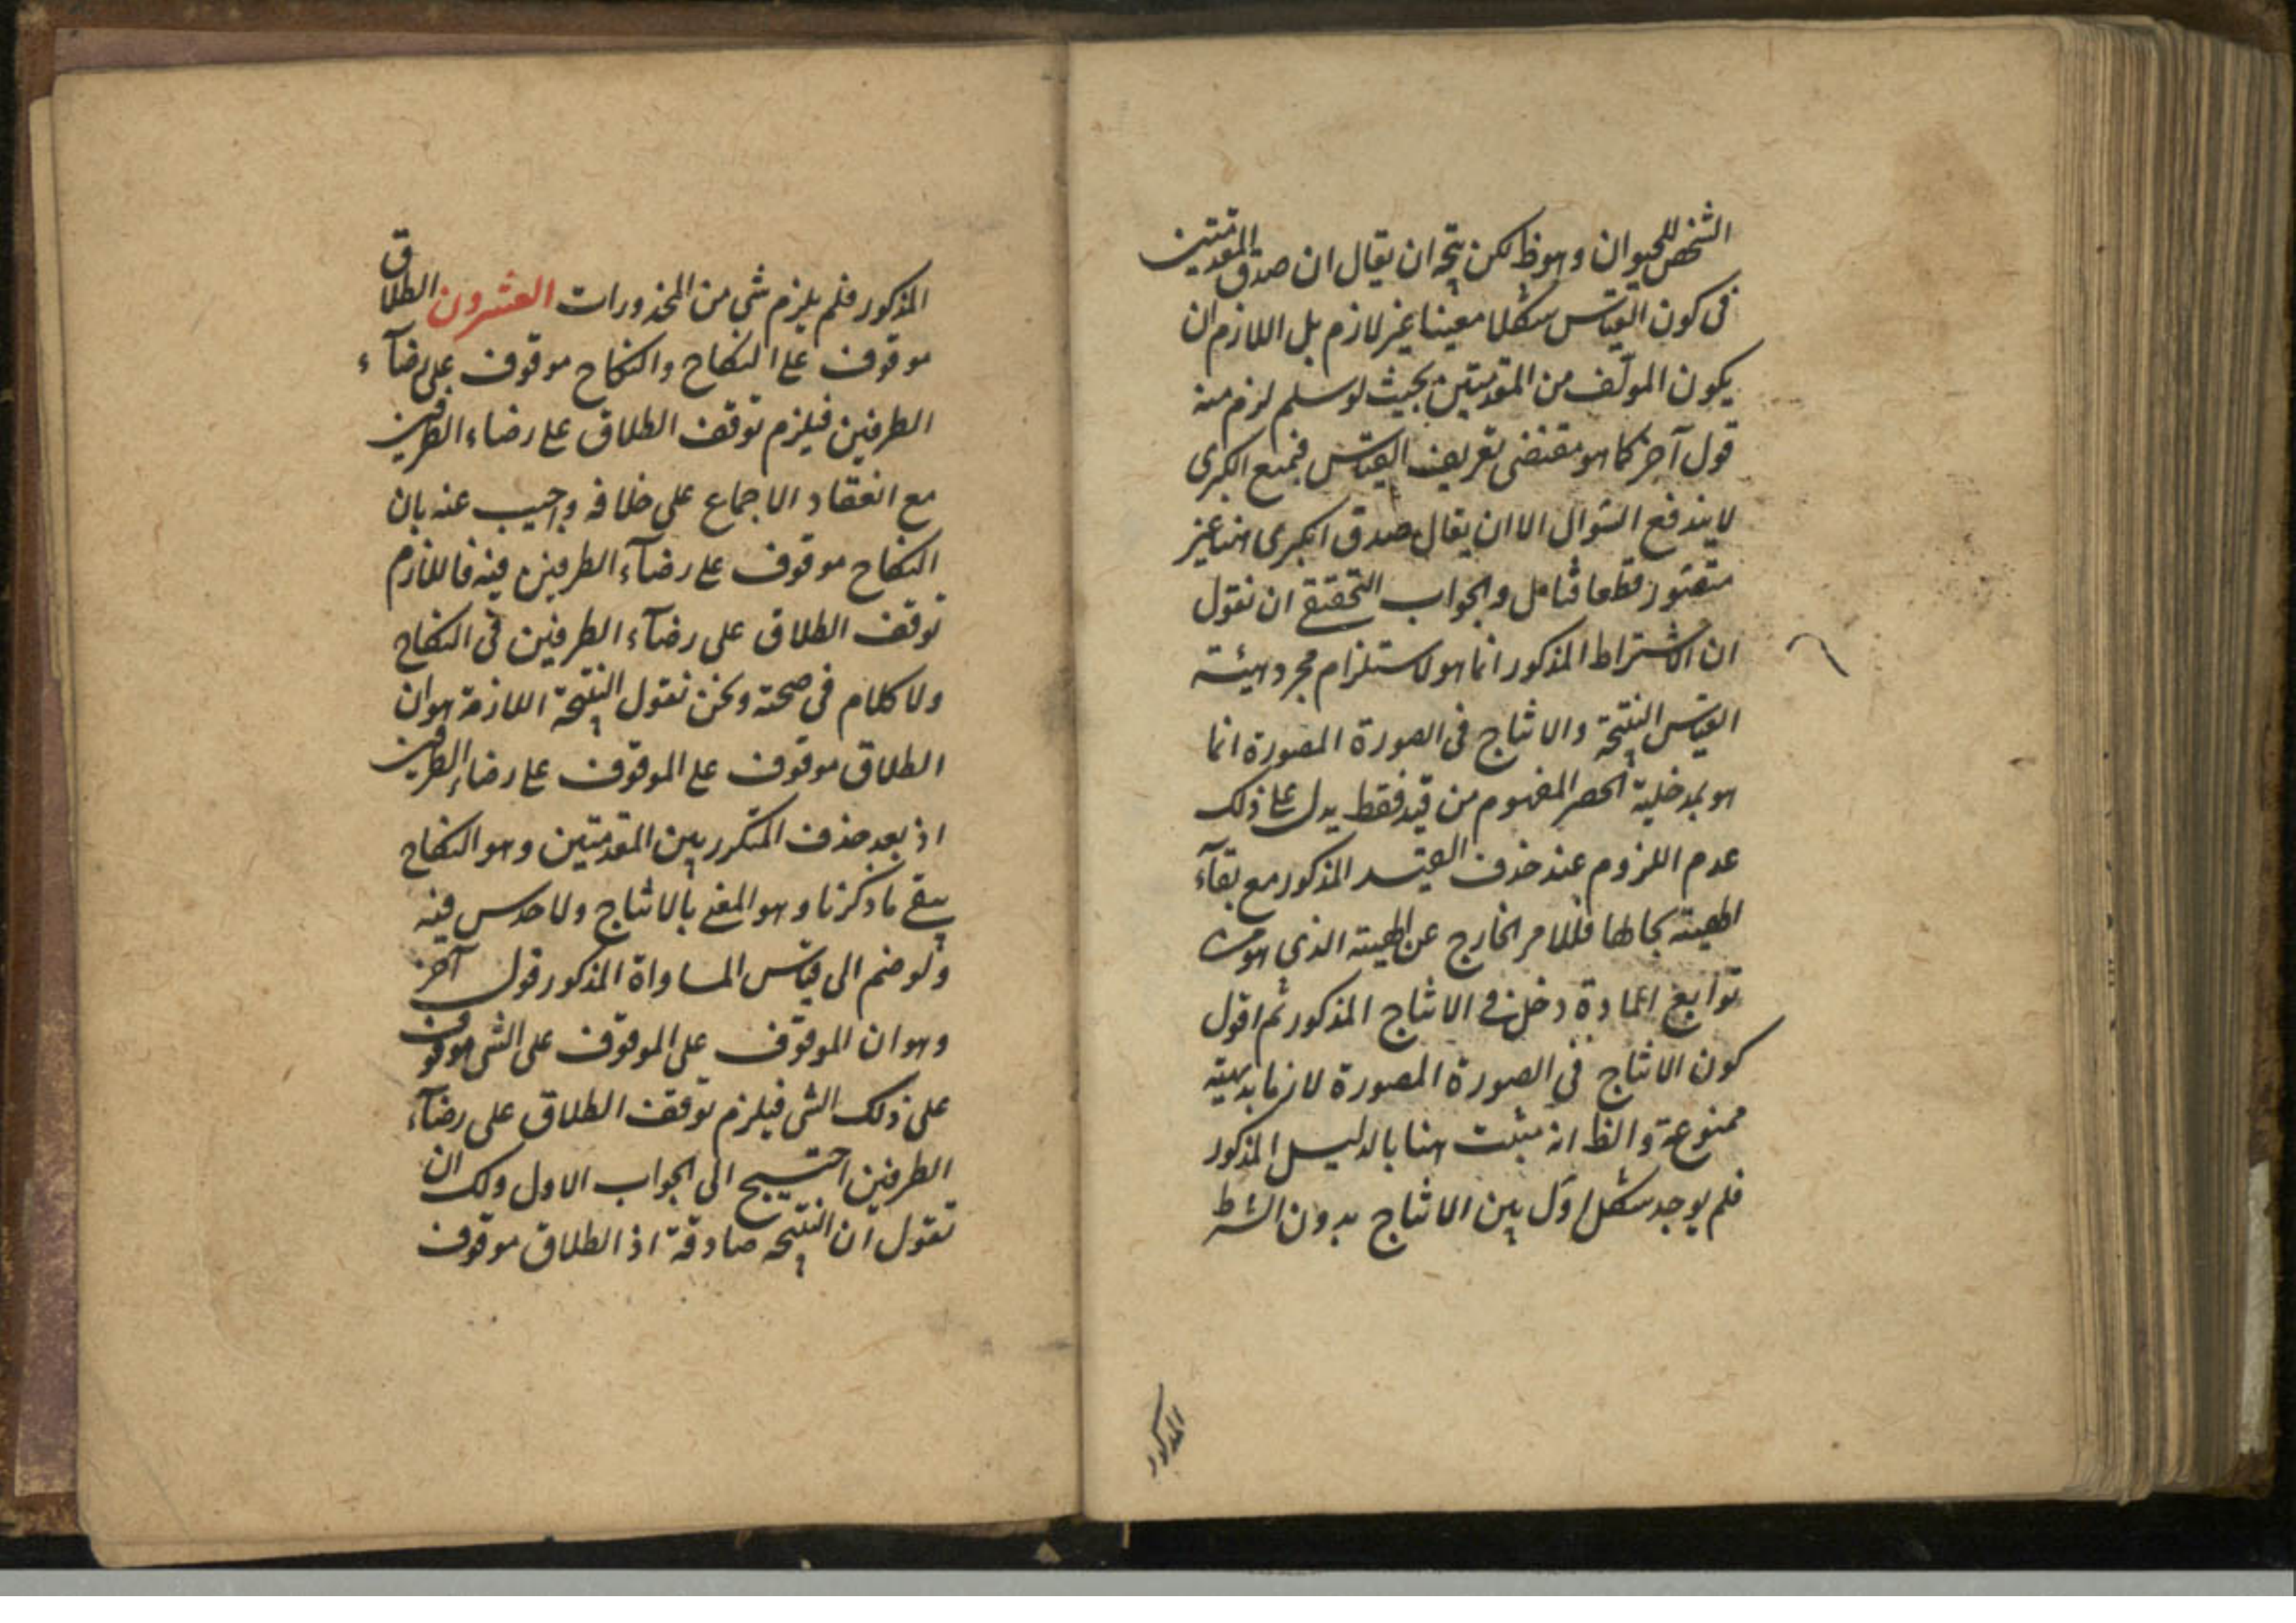 الشخص للحيوان وهو ظ لكن يتجه ان يقال ان صدق المقدمتين
فى كون القياس شكلا معينا غير لازم بل اللازم ان
يكون المولّف من المقدمتين بحيث لو سلم لزم منه
قول آخر كما هو مقتضى تعريف القياس فبمنع الكبرى
لا يندفع السؤال الا ان يقال صدق الكبرى هنا غير
متصور قطعا فتامل والجواب التحقيقى ان نقول
ان الاشتراط المذكور انما هو لاستلزام مجرد هيئة
القياس النتيجة والانتاج فى الصورة المصورة انما
هو بمدخلية الحصر المفهوم من قيد فقط يدل على ذلك
عدم اللزوم عند حذف القيد المذكور مع بقآء
الهيئة بحالها فللامر الخارج عن الهيئة الذى هو من
توابع المادة دخل فى الانتاج المذكور ثم اقول
كون الانتاج فى الصورة المصورة لازما بديهية
ممنوعة والظ انه مثبت هنا بالدليل المذكور
فلم يوجد شكل اوّل بين الانتاج بدون الشرط
المذكور
المذكور فلم يلزم شى من المحذورات العشرون الطلاق
موقوف على النكاح والنكاح موقوف على رضآء
الطرفين فيلزم توقف الطلاق على رضاء الطرفين
مع انعقاد الاجماع على خلافه واجيب عنه بان
النكاح موقوف على رضآء الطرفين فيه فاللازم
توقف الطلاق على رضآء الطرفين فى النكاح
ولا كلام فى صحته ونحن نقول النتيجة اللازمة هو ان
الطلاق موقوف على الموقوف على رضاء الطرفين
اذ بعد حذف المتكرر بين المقدمتين وهو النكاح
يبقى ما ذكرنا وهو المعنى بالانتاج ولا حدس فيه
ولو ضم الى قياس المساواة المذكور قول آخر
وهو ان الموقوف على الموقوف على الشى موقوف
على ذلك الشى فيلزم توقف الطلاق على رضآء
الطرفين احتيج الى الجواب الاول ولك ان
تقول ان النتيجة صادقة اذ الطلاق موقوف